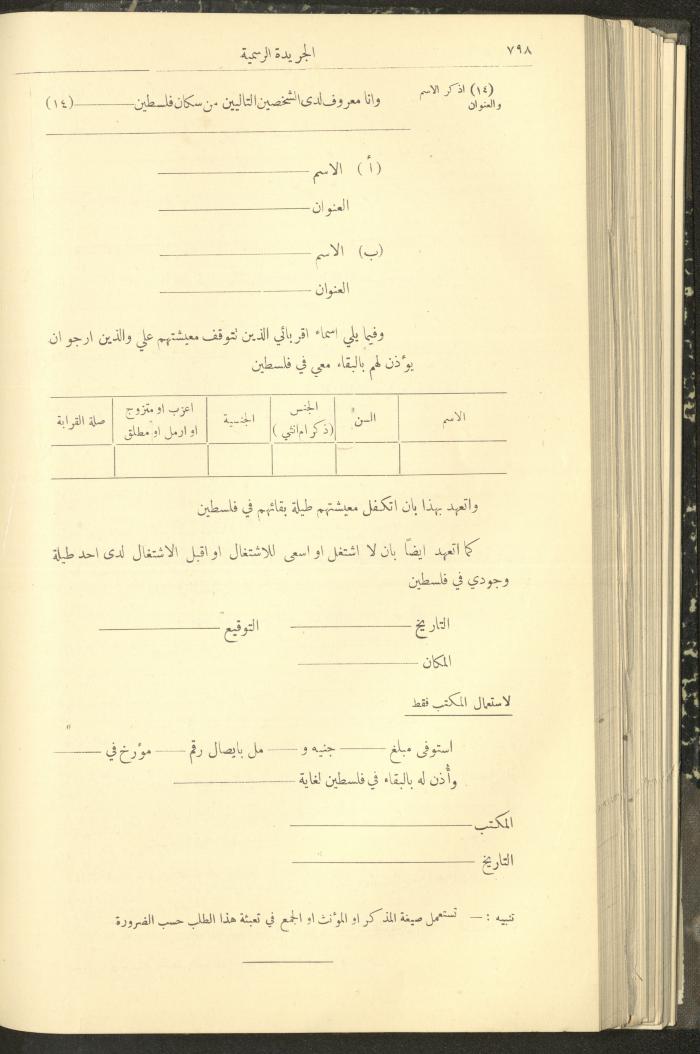 ٧٩٨
الجريدة الرسمية
(١٤) اذكر الاسم
والعنوان
وانا معروف لدى الشخصين التاليين من سكان فلسطين ــــــــ (١٤)
(أ) الاسم ــــــــ
العنوان ــــــــ
(ب) الاسم ــــــــ
العنوان ــــــــ
وفيما يلي اسماء اقربائي الذين تتوقف معيشتهم علي والذين ارجو ان
يؤذن لهم بالبقاء معي في فلسطين
الاسم
السن
الجنس
(ذكر ام انثى)
الجنسية
اعزب او متزوج
او ارمل او مطلق
صلة القرابة
واتعهد بهذا بان اتكفل معيشتهم طيلة بقائهم في فلسطين
كما اتعهد ايضاً بان لا اشتغل او اسعى للاشتغال او اقبل الاشتغال لدى احد طيلة
وجودي في فلسطين
التاريخ ــــــــ التوقيع ــــــــ
المكان ــــــــ
لاستعمال المكتب فقط
استوفى مبلغ ــــــــ جنيه و ــــــــ مل بايصال رقم ــــــــ مؤرخ في ــــــــ
وأُذن له بالبقاء في فلسطين لغاية ــــــــ
المكتب ــــــــ
التاريخ ــــــــ
تنبيه : — تستعمل صيغة المذكر او المؤنث او الجمع في تعبئة هذا الطلب حسب الضرورة